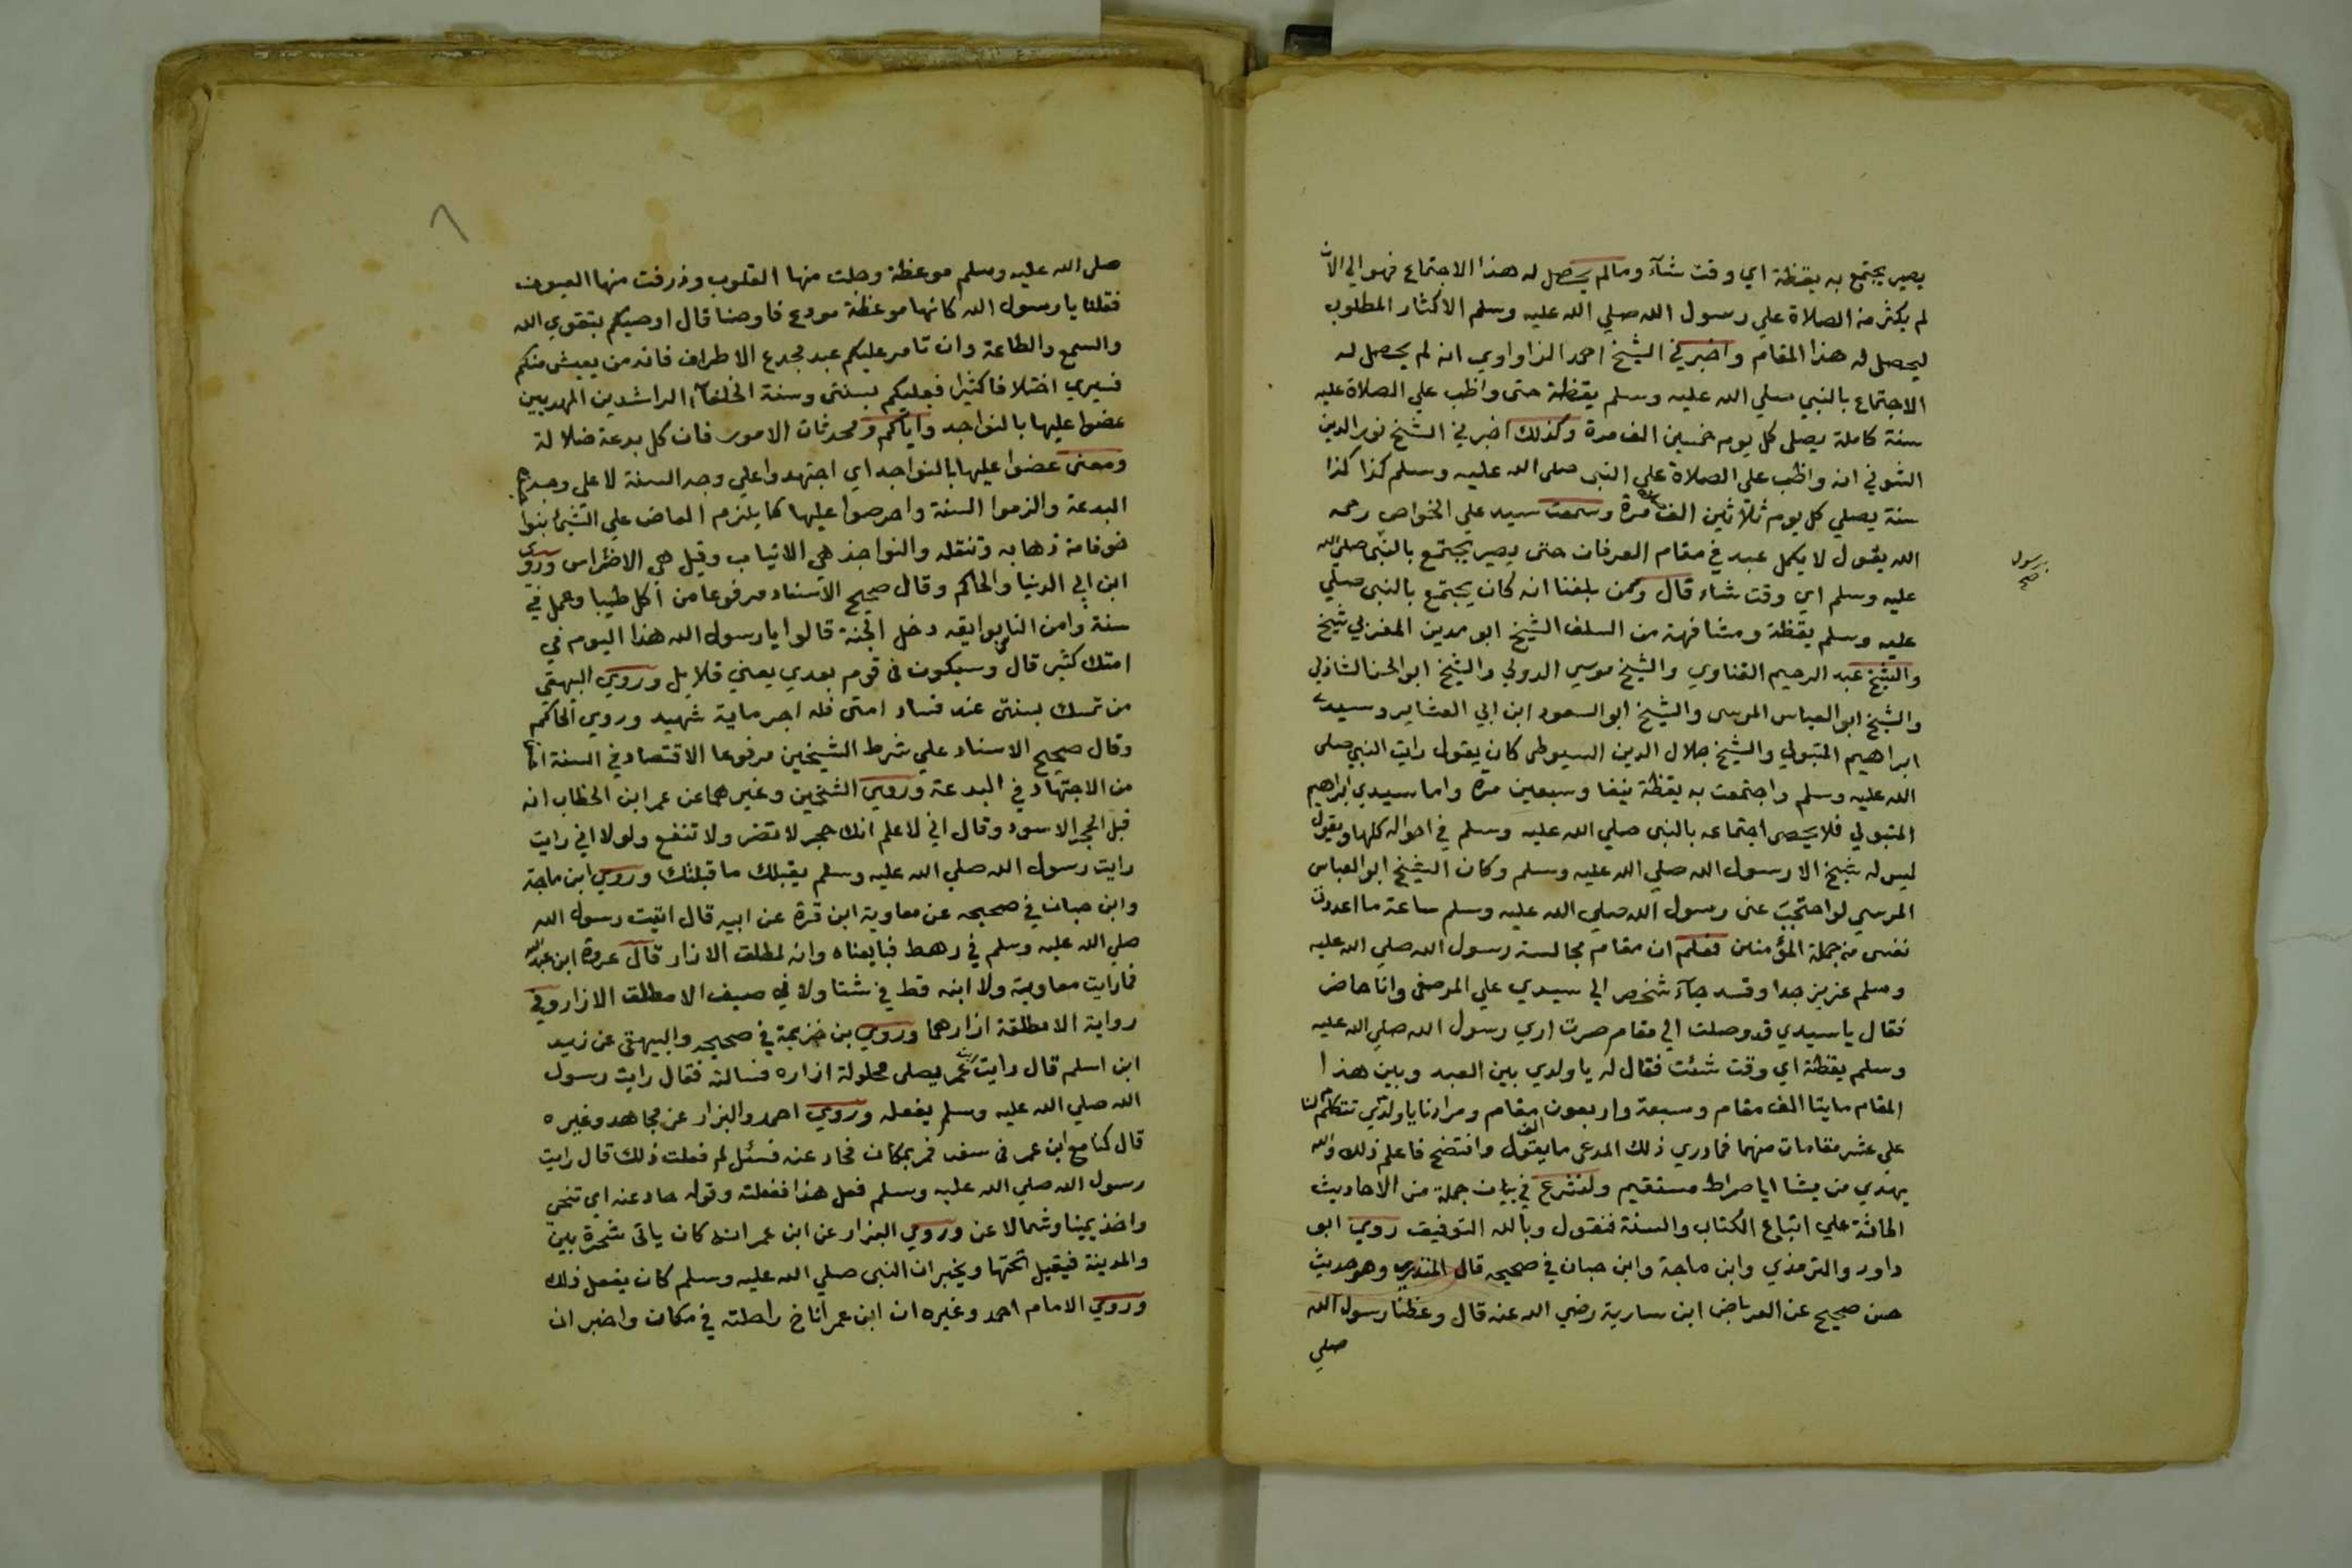 يصير يجتمع به يقظة اي وقت شآء وما لم يحصل له هذا الاجتماع فهو الي الان
لم يكثر من الصلاة علي رسول الله صلي الله عليه وسلم الاكثار المطلوب
ليحصل له هذا المقام واخبرني الشيخ احمد الزاواوي انه لم يحصل له
الاجتماع بالنبي صلي الله عليه وسلم يقظة حتى واظب علي الصلاة عليه
سنة كاملة يصلى كل يوم خمسين الف مرة وكذلك اخبرني الشيخ نور الدين
الشوني انه واظب على الصلاة علي النبى صلى الله عليه وسلم كذا كذا
سنة يصلي كل يوم ثلاثين الف مرة وسمعت سيد علي الخواص رحمه
الله يقول لا يكمل عبد في مقام العرفان حتى يصير يجتمع بالنبى صلى الله
رسول
صح
عليه وسلم اي وقت شاء قال وممن بلغنا انه كان يجتمع بالنبى صلي
عليه وسلم يقظة ومشافهة من السلف الشيخ ابو مدين المغربي شيخ
والشيخ عبد الرحيم القناوي والشيخ موسي الدولي والشيخ ابو الحسن الشاذلي
والشيخ ابو العباس المرسى والشيخ ابو السعود ابن ابي العشاير وسيدي
ابراهيم المتبولي والشيخ جلال الدين السيوطى كان يقول رايت النبي صلى
الله عليه وسلم واجتمعت به يقظة نيفا وسبعين مرة واما سيدي ابراهيم
المتبولي فلا يحصى اجتماعه بالنبى صلي الله عليه وسلم في احواله كلها ويقول
ليس له شيخ الا رسول الله صلي الله عليه وسلم وكان الشيخ ابو العباس
المرسي لو احتجبت عنى رسول الله صلي الله عليه وسلم ساعة ما اعددت
نفسى من جملة المؤمنين فعلم ان مقام مجالسة رسول الله صلي الله عليه
وسلم عزيز جدا وقد جآء شخص الي سيدي علي المرصفى وانا حاضر
فقال يا سيدي قد وصلت الي مقام صرت اري رسول الله صلي الله عليه
وسلم يقظة اي وقت شئت فقال له يا ولدي بين العبد وبين هذا
المقام مايتا الف مقام وسبعة واربعون الف مقام ومرادنا يا ولدي تتكلم لنا
على عشر مقامات منها فما دري ذلك المدعى ما يقول وافتضح فاعلم ذلك والله
يهدي من يشا ايا صراط مستقيم ولنشرع في بيان جملة من الاحاديث
الحاثة علي اتباع الكتاب والسنة فنقول وبالله التوفيق روي ابو
داود والترمذي وابن ماجة وابن حبان في صحيحه قال المنذري وهو حديث
حسن صحيح عن العرباض ابن سارية رضي الله عنه قال وعظنا رسول الله
صلي
صلى الله عليه وسلم موعظة وجلت منها القلوب وذرفت منها العيون
فقلنا يا رسول الله كانها موعظة مودع فاوصنا قال اوصيكم بتقوي الله
والسمع والطاعة وان تامر عليكم عبد مجدع الاطراف فانه من يعيش منكم
فسيري اختلافا كثيرا فعليكم بسنتى وسنة الخلفآء الراشدين المهديين
عضوا عليها بالنواجد واياكم ومحدثات الامور فان كل بدعة ضلالة
ومعنى عضوا عليها بالنواجد اي اجتهدوا علي وجه السنة لا على وجه
البدعة والزموا السنة واحرصوا عليها كما يلزم العاض علي الشئ بنواجذه
خوفا من ذهابه وتنقله والنواجذ هي الانياب وقيل هي الاضراس وروي
ابن ابي الدنيا والحاكم وقال صحيح الاسناد مرفوعا من اكل طيبا وعمل في
سنة وامن الناس بوايقه دخل الجنة قالوا يا رسول الله هذا اليوم في
امتك كثير قال وسيكون فى قوم بعدي يعني قلايل وروي البهقي
من تمسك بسنتى عند فساد امتى فله اجر ماية شهيد وروي الحاكم
وقال صحيح الاسناد علي شرط الشيخين مرفوعا الاقتصاد في السنة
من الاجتهاد في البدعة وروي الشخين وغيرهما عن عمر ابن الخطاب انه
قبل الحجر الاسود وقال اني لا علم انك حجر لا تضر ولا تنفع ولولا اني رايت
رايت رسول الله صلي الله عليه وسلم يقبلك ما قبلتك وروي ابن ماجة
وابن حبان في صحيحه عن معاوية ابن قرة عن ابيه قال اتيت رسول الله
صلي الله عليه وسلم في رهط فبايعناه وانه لمطلق الازار قال عروة ابن عبد الله
فما رايت معاوية ولا ابنه قط في شتا ولا في صيف الا مطلق الازار وفي
رواية الا مطلقة ازارهما وروي بن خزيمة في صحيحه والبيهقى عن زيد
ابن اسلم قال رايت ابن عمر يصلى محلولة ازاره فسالته فقال رايت رسول
الله صلي الله عليه وسلم يفعله وروي احمد والبزار عن مجاهد وغيره
قال كنا مع ابن عمر فى سفر فمر بمكان فحاد عنه فسئل لم فعلت ذلك قال رايت
رسول الله صلي الله عليه وسلم فعل هذا ففعلته وقوله حاد عنه اي تنحي
واخذ يمينا وشمالا عن وروي البزار عن ابن عمر انه كان ياتى شجرة بين
والمدينة فيقيل تحتها ويخبر ان النبى صلي الله عليه وسلم كان يفعل ذلك
وروي الامام احمد وغيره ان ابن عمر اناخ راحلته في مكان واخبر ان